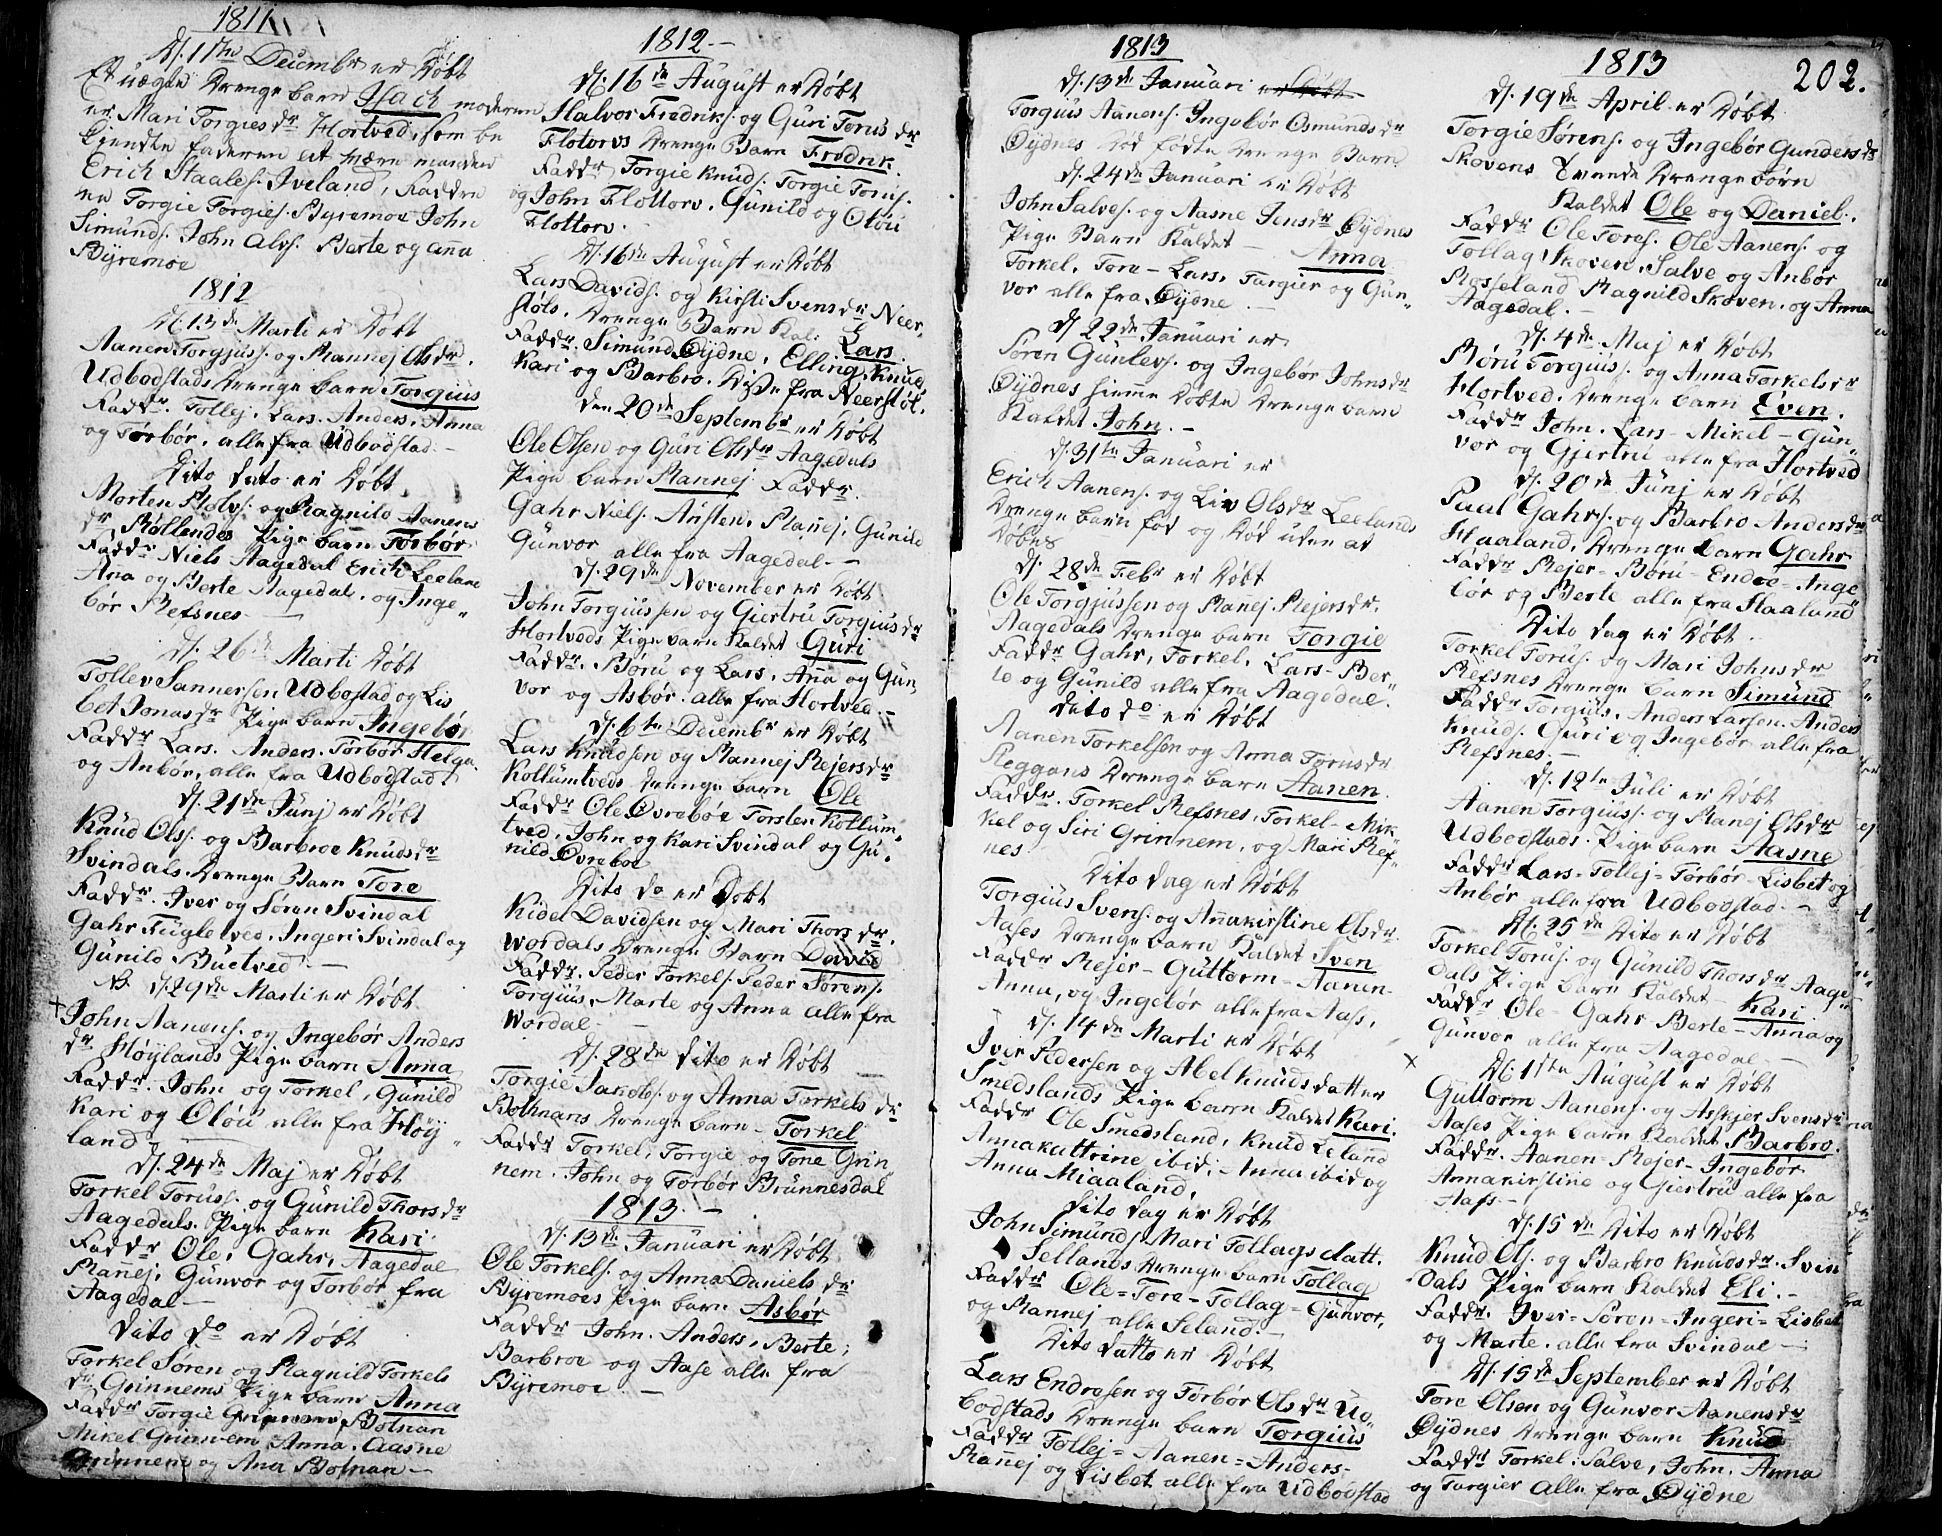 1811
d. 11te Decembr er Døbt
Et uægte Drenge barn Isach moderen
er Mari Torgiesdr Hortved, som be
kiendte faderen at være manden
Erich Staales. Iveland, Faddre
ne Torgie Torgies. Byremoe John
Simunds. John Alvs. Berte og Anna
Byremoe
1812
d. 13de Marti er Døbt
Aanen Torgjuss. og Rannej Olsdr.
Udbodstads Drenge barn Torgius
Faddr. Tollej. Lars. Anders. Anna
og Torbør. alle fra Udbodstad.
Dito dato er Døbt
Morten Rolvs. og Ragnild Aanens
dr Røllendes Pige barn Torbør
Faddr Niels Aagedal Erich Leeland
Ana og Berte Aagedal. og Inge
bør Refsnes
d. 26de Marti Døbt
Tollev Sannersen Udbostad og Lis
bet Jonasdr Pige barn Ingebør
Faddr Lars. Anders. Torbør Helga
og Anbør. alle fra Udbodstad
d. 21de Junj er Døbt
Knud Ols. og Barbroe Knudsdr
Svindals. Drenge Barn Tore
Faddr. Iver og Søren Svindal
Gahr Fugletved. Ingeri Svindal og
Gunild Buetved
B. d. 29de Marti er Døbt
+ John Aanens. og Ingebør Anders
dr Høylands Pige barn Anna
Faddr. John og Torkel, Gunild
Kari og Olou alle fra Høy
land
d. 24de Maj er Døbt
Torkel Toruss. og Gunild Thorsdr
Aagedals. Pige barn Kari
Faddr Ole, Gahr, Aagedal
Rannej, Gunvor og Torbør fra
Aagedal
Dito do er Døbt
Torkel Søren og Ragnild Torkels
dr Grinnems Pige barn Anna
Faddr Torgie Grinnem, Botnan
Mikel Grinnem Anna. Aasne
Grinnem og Ana Botnan
1812
d. 16de August er Døbt
Halvor Fredriks. og Guri Torusdr
Flotorvs Drenge Barn Fredrik
Faddr Torgie Knuds. Torgie Torus.
og John Flottorv, Gunild og Olou
Flottorv.
d. 16de August er Døbt
Lars Davids. og Kirsti Svensdr Neer,
støls. Drenge Barn Kal. Lars
Faddr. Simund Øydne, Elling, Knud,
Kari og Barbro. Disse fra Neerstøl.
den 20de Septembr er Døbt
Ole Olsen og Guri Olsdr Aagedals
Pige barn Rannej Faddr.
Gahr Niels. Austen, Rannej, Gunild
Gunvor alle fra Aagedal
d. 29de November er Døbt
John Torgiussen og Giertru Torgiusdr
Hortveds Pige barn Kaldet Guri
Faddr. Boru og Lars, Anna og Gun
vor og Asbør. alle fra Hortved.
d. 6te Decembr er Døbt
Lars Knudsen og Rannej Rejersdr
Kollumtveds. Drenge barn Ole
Faddr Ole Øvrebøe Torsten Kollum
tved. John og Kari Svindal og Gu
nild Øvreboe
Dito do er Døbt
Kidel Davidsen og Mari Thorsdr.
Wordals Drenge Barn David
Faddr. Peder Torkels. Peder Sørens.
Torgius. Marte og Anna alle fra
Wordal
d. 28de Dito er Døbt
Torgie Jakobs. og Anna Torkelsdr
Bothnans Drenge barn - Torkel
Faddr Torkel, Torgie og Tone Grin
nem. John og Torbør Brunnesdal
1813.
d. 13de Januari er Døbt
Ole Torkels. og Anna Danielsdr
Byremoes Pige barn Asbør
Faddr John. Anders, Berte,
Barbroe og Aase alle fra
Byremoe.
1813
d. 13de Januari er Døbt
Torgius Aanens. Ingebør Osmundsdr
Øydnes Død fødte Drenge Barn
d. 24de Januari er Døbt
John Salves. og Aasne Jensdr Øydnes
Pige Barn Kaldet - Anna
Torkel. Tore - Lars. Targier og Gun
vor alle fra Øydne
d. 22de Januari er
Søren Gunlevs. og Ingebør Johnsdr
Øydnes hiemme Døbte Drenge barn
Kaldet John.
d. 31te Januari er
Erich Aanens. og Liv Olsdr Leelands
Drenge barn fød og Død uden at
Døbes
d. 28de Febr er Døbt
Ole Torgjussen og Rannej Rejersdr.
Aagedals Drenge barn Torgie
Faddr Gahr, Torkel, Lars - Ber
te og Gunild alle fra Aagedal.
Dato do er Døbt
Aanen Torkelsen og Anna Torusdr
Reggans Drenge barn Aanen
Faddr. Torkel Refsnes, Torkel - Mik
kel og Siri Grinnem, og Mari Ref
nes
Dito dag er Døbt
Torgius Svens. og Anakirstine Olsdr.
Aases Drenge barn Kaldet Sven
Faddr Rejer - Guttorm - Aanen
Anna, og Ingebør alle fra Aas,
d. 14de Marti er Døbt
Iver Pedersen og Abel Knudsdatter
Smedslands Pige barn Kaldet Kari.
Faddr Ole Smedsland, Knud Leland
Annakattrine ibid, Anna ibid og
Anna Miaaland,
Dito dag er Døbt
John Simunds. Mari Tollagsdatt.
Sellands Drenge barn Tollag
Faddr Ole - Tore - Tollag - Gunvor,
og Rannej alle Seland.
Dito datto er Døbt
Lars Endresen og Torbør Olsdr Ud
bodstads Drenge barn Torgius
Faddr Tollej - Aanen - Anders
Ranej og Lisbet alle fra Udbodstad
1813
202.
d. 19de April er Døbt
Torgie Sørens. og Ingebør Gundersdr
Skovens Tvende Drenge børn
Kaldet Ole og Daniel.
Faddr Ole Tores. Ole Aanens. og
Tollag Skoven, Salve og Anbør
Rosseland Ragnild Skoven. og Anna
Aagedal.
d. 4de Maj er Døbt
Boru Torgius. og Anna Torkelsdr
Hortved. Drenge barn Even.
Faddr John. Lars - Mikel - Gun
vor og Giertru alle fra Hortved
d. 20de Junj er Døbt
Paal Gahrs. og Barbro Andersdr
Haaland. Drenge barn Gahr
Faddr Rejer - Boru - Endre - Inge
bør og Berte alle fra Haaland
Dito dag er Døbt.
Torkel Torus. og Mari Johnsdr
Refsnes Drenge barn Simund
Faddr Torgius. Anders Larsen. Anders
Knuds. Guri og Ingebør alle fra
Refsnes.
d. 12te Juli er Døbt
Aanen Torgius. og Ranej Olsdr
Udbodstads. Pige barn Aasne
Faddr Lars - Tollej - Torbør - Lisbet og
Anbør alle fra Udbodstad.
d. 25de Dito er Døbt
Torkel Torus. og Gunild Thorsdr Aage
dals Pige barn Kaldet - Kari
Faddr Ole - Gahr - Berte - Anna og
Gunvor alle fra Aagedal
× d. 11te August er Døbt
Guttorm Aanens. og Askjer Svensdr
Aases Pige barn Kaldet Barbro.
Faddr. Aanen - Rejer - Ingebør
Annakirstine og Giertru alle fra
Aas.
d. 15de Dito er Døbt
Knud Ols. og Barbro Knudsdr. Svin
dals Pige barn Kaldet Eli.
Faddr. Iver - Søren - Ingeri - Lisbet
og Marte. alle fra Svindal
d. 15de September er Døbt
Tore Olsen og Gunvor Aanensdr
Øydnes Drenge barn Knud
Faddr Torkel. Salve, John. Anna
og Targier alle fra Øydne